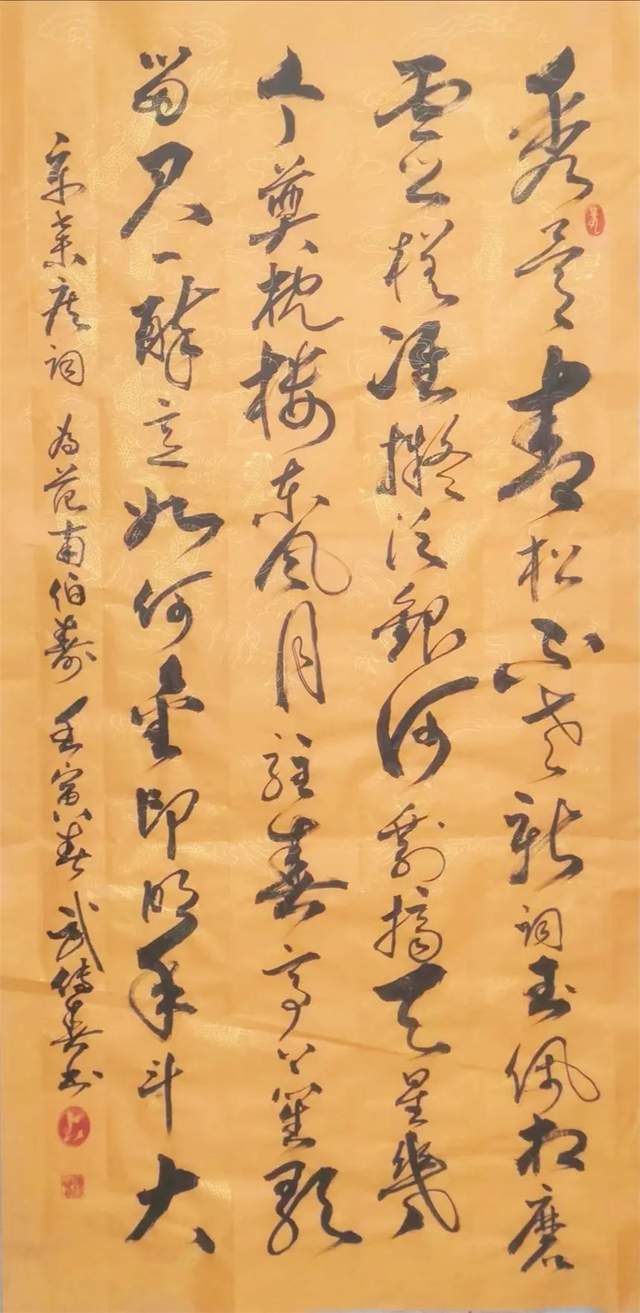 秀骨青松不老新词玉佩相磨
靈槎準擬泛銀河剩摘天星幾
个奠枕楼东风月驻春亭上笙歌
留君一醉意如何金印明年斗大
辛棄疾词 为范南伯寿 壬寅春 武传春书